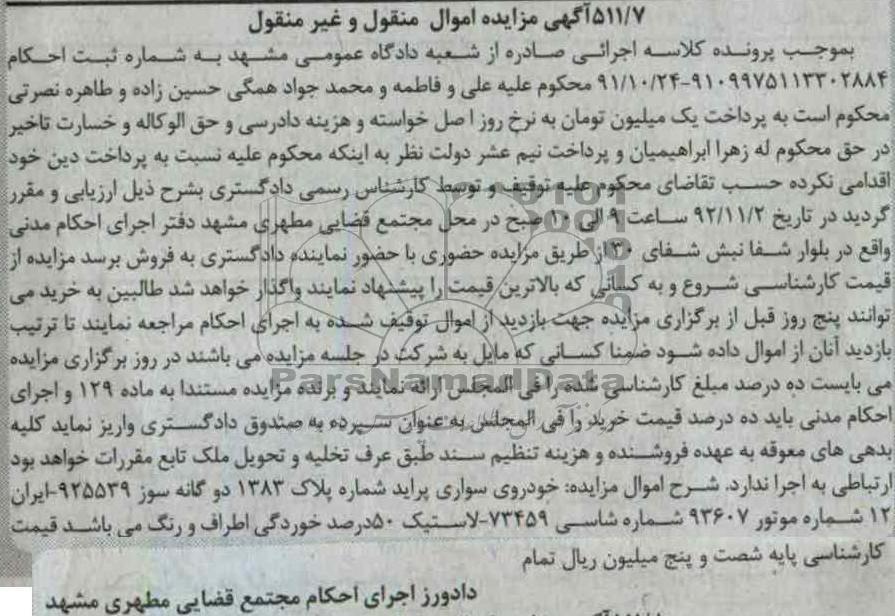 ۵۱۱/۷آگهی مزایده اموال منقول و غیر منقول
بموجب پرونده کلاسه اجرائی صادره از شعبه دادگاه عمومی مشهد به شماره ثبت احکام
۹۱۰۹۹۷۵۱۱۳۳۰۲۸۸۴-۹۱/۱۰/۲۴ محکوم علیه علی و فاطمه و محمد جواد همگی حسین زاده و طاهره نصرتی
محکوم است به پرداخت یک میلیون تومان به نرخ روز اصل خواسته و هزینه دادرسی و حق الوکاله و خسارت تاخیر
در حق محکوم له زهرا ابراهیمیان و پرداخت نیم عشر دولت نظر به اینکه محکوم علیه نسبت به پرداخت دین خود
اقدامی نکرده حسب تقاضای محکوم علیه توقیف و توسط کارشناس رسمی دادگستری بشرح ذیل ارزیابی و مقرر
گردید در تاریخ ۹۲/۱۱/۲ ساعت ۹ الی ۱۰ صبح در محل مجتمع قضایی مطهری مشهد دفتر اجرای احکام مدنی
واقع در بلوار شفا نبش شفای ۳۰ از طریق مزایده حضوری با حضور نماینده دادگستری به فروش برسد مزایده از
قیمت کارشناسی شروع و به کسانی که بالاترین قیمت را پیشنهاد نمایند واگذار خواهد شد طالبین به خرید می
توانند پنج روز قبل از برگزاری مزایده جهت بازدید از اموال توقیف شده به اجرای احکام مراجعه نمایند تا ترتیب
بازدید آنان از اموال داده شود ضمنا کسانی که مایل به شرکت در جلسه مزایده می باشند در روز برگزاری مزایده
می بایست ده درصد مبلغ کارشناسی شده را فی المجلس ارائه نمایند و برنده مزایده مستندا به ماده ۱۲۹ و اجرای
احکام مدنی باید ده درصد قیمت خرید را فی المجلس به عنوان سپرده به صندوق دادگستری واریز نماید کلیه
بدهی های معوقه به عهده فروشنده و هزینه تنظیم سند طبق عرف تخلیه و تحویل ملک تابع مقررات خواهد بود
ارتباطی به اجرا ندارد. شرح اموال مزایده: خودروی سواری پراید شماره پلاک ۱۳۸۳ دو گانه سوز ۹۲۵۵۳۹-ایران
۱۲ شماره موتور ۹۳۶۰۷ شماره شاسی ۷۳۴۵۹-لاستیک ۵۰درصد خوردگی اطراف و رنگ می باشد قیمت
کارشناسی پایه شصت و پنج میلیون ریال تمام
دادورز اجرای احکام مجتمع قضایی مطهری مشهد
ParsNamadData